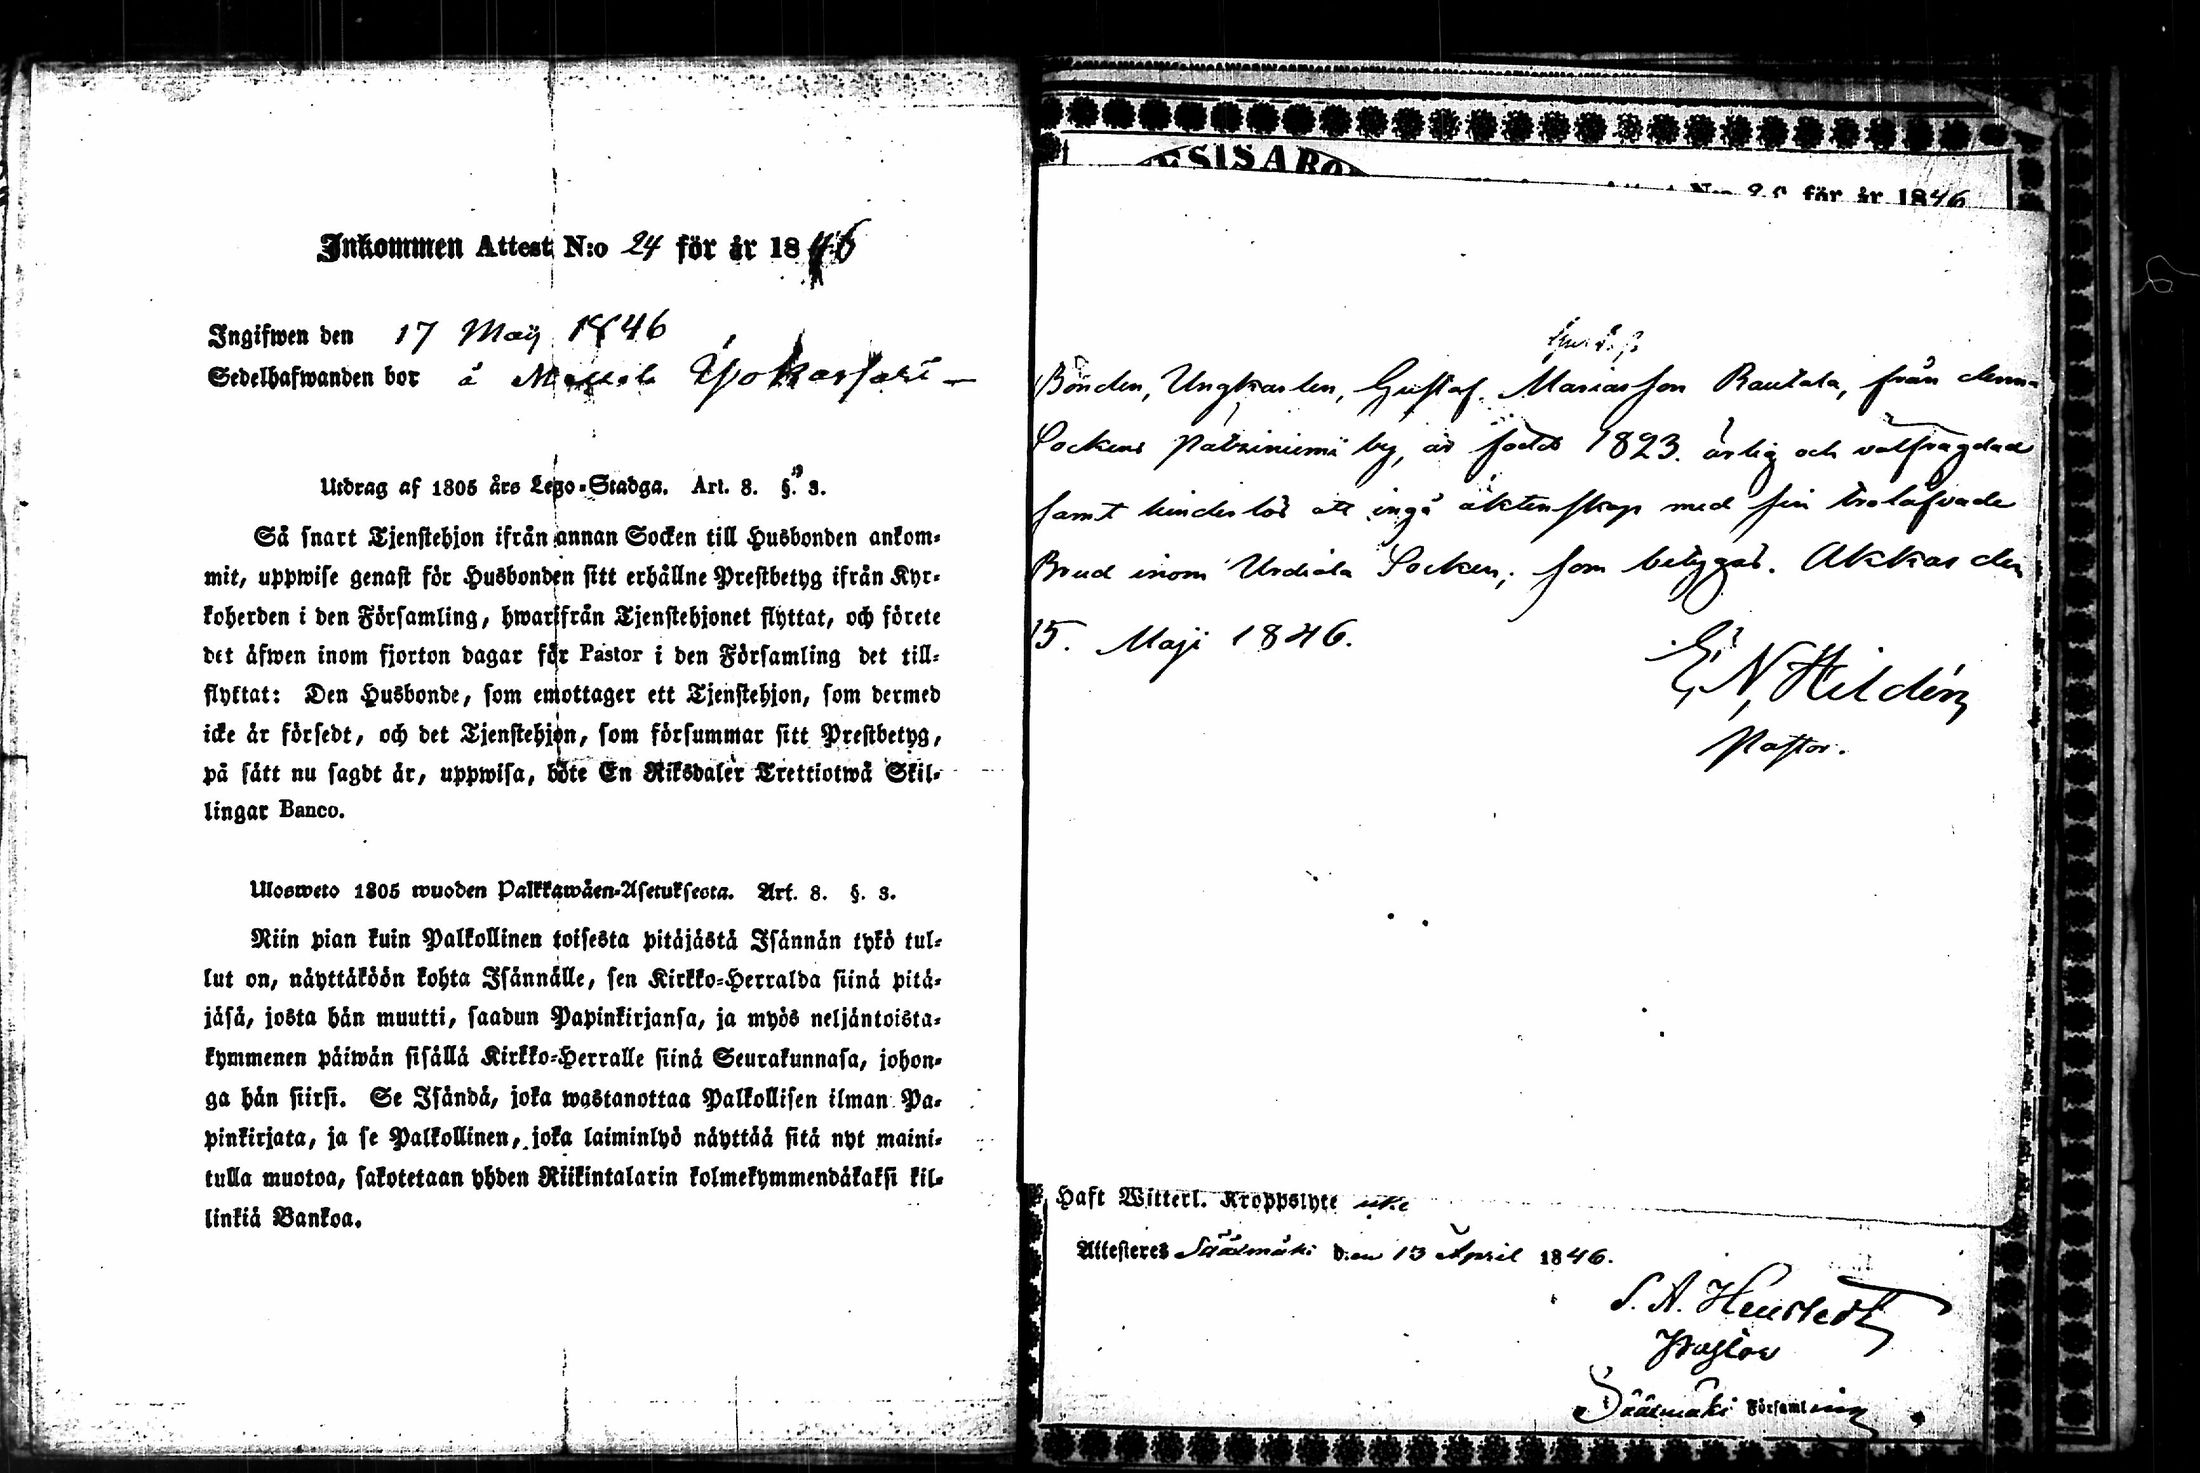 Inkommen Attest N:o 24 för år 1846
Ingifwen den 17 Maij 1846
Sedelhafwanden bor å
Utdrag af 1805 års Lego-Stadga. Art. 8. §. 3.
Så snart Tjenstehjon ifrån annan Socken till Husbonden ankom-
mit, uppwise genast för Husbonden sitt erhållne Prestbetyg ifrån Kyr-
koherden i den Församling, hwarifrån Tjenstehjonet flyttat, och förete
det äfwen inom fjorton dagar för Pastor i den Församling det till-
flyttat: Den Husbonde, som emottager ett Tjenstehjon, som dermed
icke är försedt, och det Tjenstehjon, som försummar sitt Prestbetyg,
på sätt nu sagdt är, uppwisa, böte En Riksdaler Trettiotwå Skil-
lingar Banco.
Ulosweto 1805 wuoden Palkkawäen-Asetuksesta. Art. 8. §. 3.
Niin pian kuin Palkollinen toisesta pitäjästä Isännän tykö tul-
lut on, näyttäköön kohta Isännälle, sen Kirkko-Herralda siinä pitä-
jäsä, josta hän muutti, saadun Papinkirjansa, ja myös neljäntoista-
kymmenen päiwän sisällä Kirkko-Herralle siinä Seurakunnasa, johon-
ga hän siirsi. Se Isändä, joka wastanottaa Palkollisen ilman Pa-
pinkirjata, ja se Palkollinen, joka laiminlyö näyttää sitä nyt maini-
tulla muotoa, sakotetaan yhden Riikintalarin kolmekymmendäkaksi kil-
linkiä Bankoa.
för år 1846
Bonden, Ungkarlen, Gustaf Mariasson Rautala, från denna
Sockens by, är född 1823. ärlig och välfrägdad
samt hinderlös att ingå äktenskap med sin trolåfvade
Brud inom Urdiala Socken; som betygas. Akkas den
15. Maji 1846.
E. N. Hildén
Pastor.
Haft Witterl. Kroppslyte icke
Attesteres Sääxmäki den 13 April 1846.
S. A.
Pastor
Sääxmäki Församling